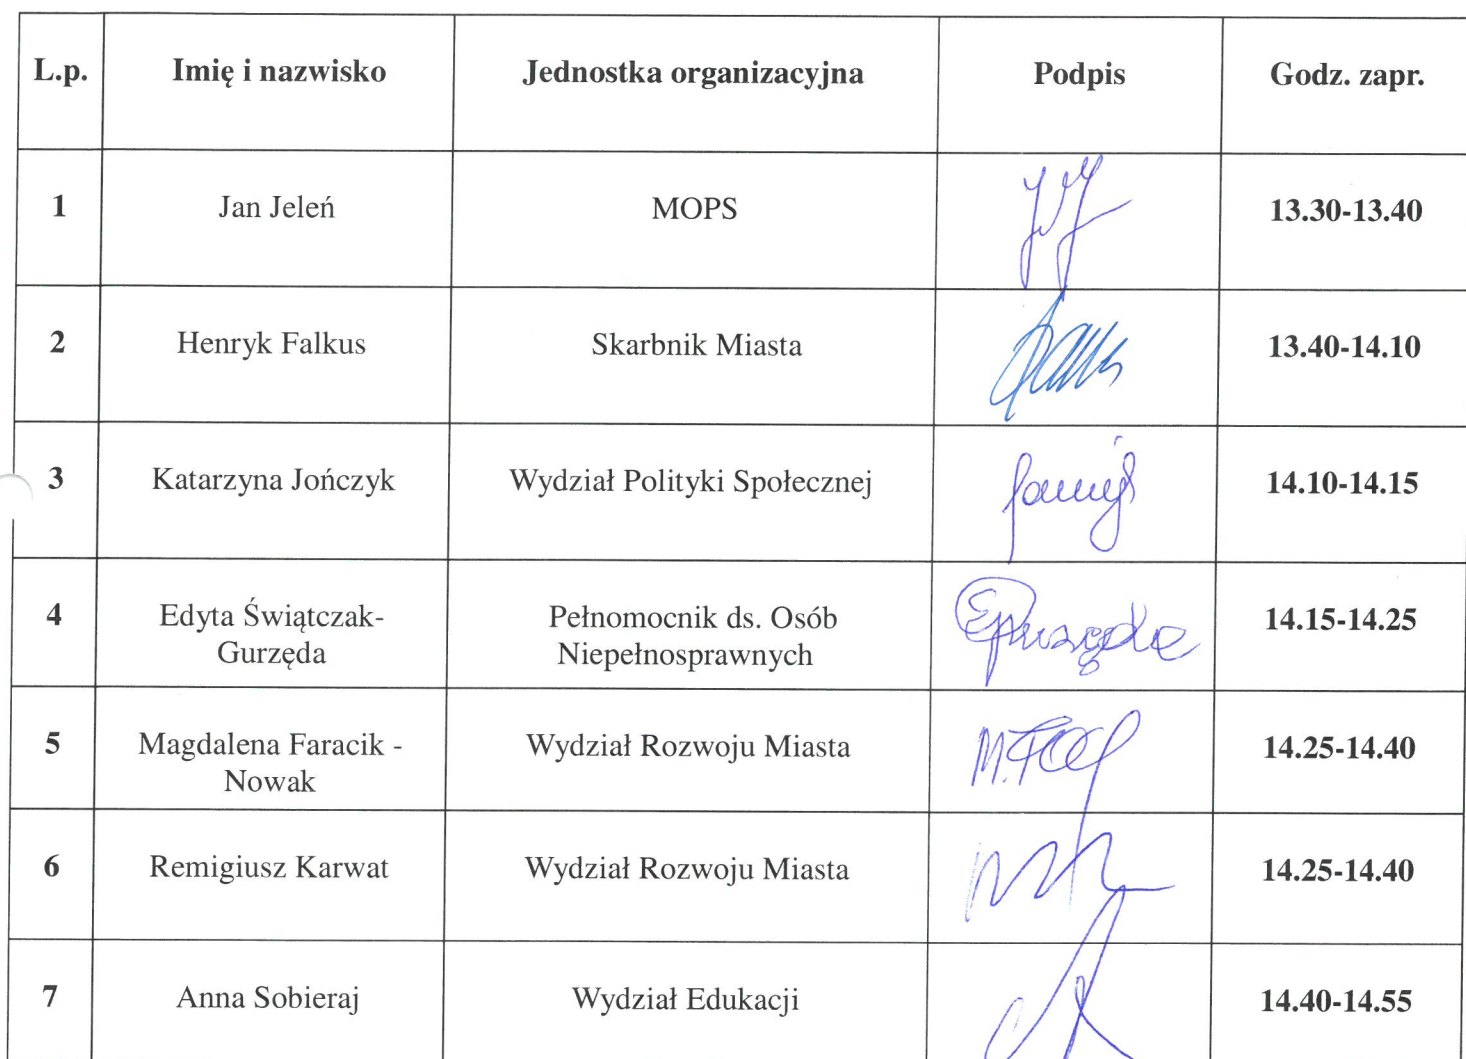 L.p. Imię i nazwisko Jednostka organizacyjna Podpis Godz. zapr.
1 Jan Jeleń MOPS 13.30-13.40
2 Henryk Falkus Skarbnik Miasta 13.40-14.10
3 Katarzyna Jończyk Wydział Polityki Społecznej 14.10-14.15
4 Edyta Świątczak- Pełnomocnik ds. Osób 14.15-14.25
Gurzęda Niepełnosprawnych
5 Magdalena Faracik - Wydział Rozwoju Miasta 14.25-14.40
Nowak
6 Remigiusz Karwat Wydział Rozwoju Miasta 14.25-14.40
7 Anna Sobieraj Wydział Edukacji 14.40-14.55